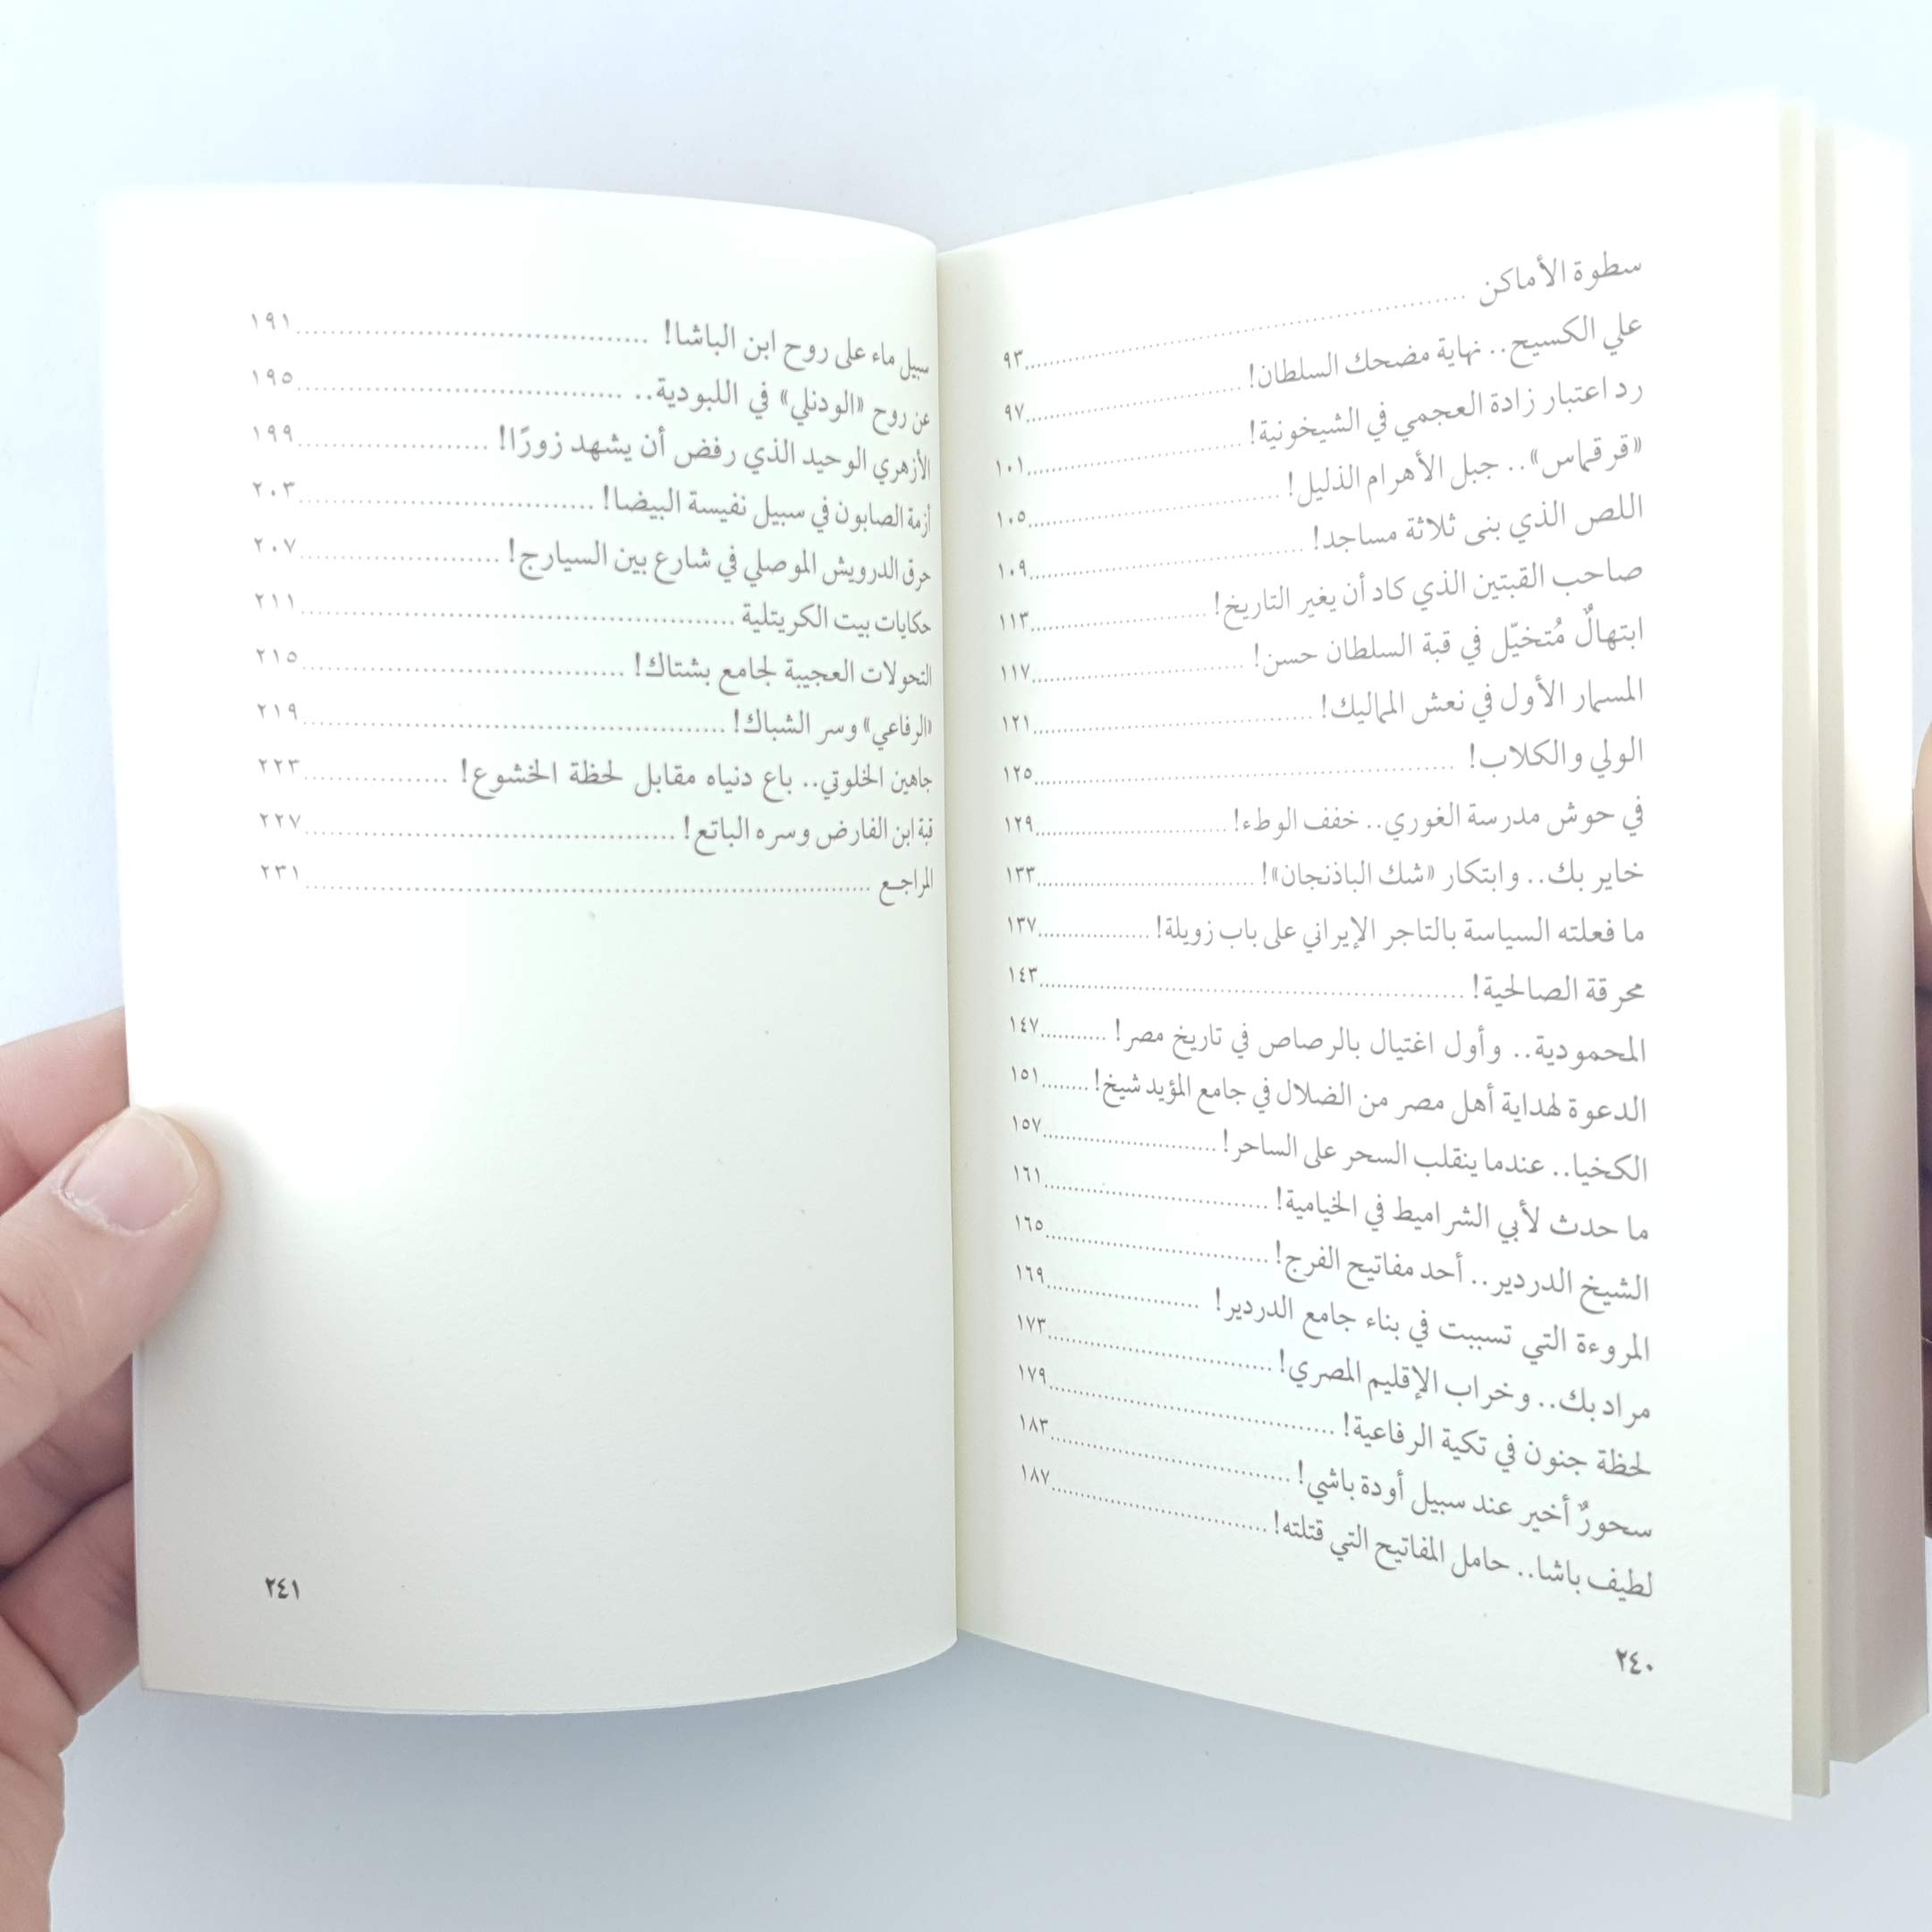 سطوة الأماكن ........ ٩٣
علي الكسيح.. نهاية مضحك السلطان! ........ ٩٧
رد اعتبار زادة العجمي في الشيخونية! ........ ١٠١
«قرقماس».. جبل الأهرام الذليل! ........ ١٠٥
اللص الذي بنى ثلاثة مساجد! ........ ١٠٩
صاحب القبتين الذي كاد أن يغير التاريخ! ........ ١١٣
ابتهالٌ مُتخيّل في قبة السلطان حسن! ........ ١١٧
المسمار الأول في نعش المماليك! ........ ١٢١
الولي والكلاب! ........ ١٢٥
في حوش مدرسة الغوري.. خفف الوطء! ........ ١٢٩
خاير بك.. وابتكار «شك الباذنجان»! ........ ١٣٣
ما فعلته السياسة بالتاجر الإيراني على باب زويلة! ........ ١٣٧
محرقة الصالحية! ........ ١٤٣
المحمودية.. وأول اغتيال بالرصاص في تاريخ مصر! ........ ١٤٧
الدعوة لهداية أهل مصر من الضلال في جامع المؤيد شيخ! ........ ١٥١
الكخيا.. عندما ينقلب السحر على الساحر! ........ ١٥٧
ما حدث لأبي الشراميط في الخيامية! ........ ١٦١
الشيخ الدردير.. أحد مفاتيح الفرج! ........ ١٦٥
المروءة التي تسببت في بناء جامع الدردير! ........ ١٦٩
مراد بك.. وخراب الإقليم المصري! ........ ١٧٣
لحظة جنون في تكية الرفاعية! ........ ١٧٩
سحورٌ أخير عند سبيل أودة باشي! ........ ١٨٣
لطيف باشا.. حامل المفاتيح التي قتلته! ........ ١٨٧
٢٤٠
سبيل ماء على روح ابن الباشا! ........ ١٩١
عن روح «الودنلي» في اللبودية.. ........ ١٩٥
الأزهري الوحيد الذي رفض أن يشهد زورًا! ........ ١٩٩
أزمة الصابون في سبيل نفيسة البيضا! ........ ٢٠٣
حرق الدرويش الموصلي في شارع بين السيارج! ........ ٢٠٧
حكايات بيت الكريتلية ........ ٢١١
التحولات العجيبة لجامع بشتاك! ........ ٢١٥
«الرفاعي» وسر الشباك! ........ ٢١٩
جاهين الخلوتي.. باع دنياه مقابل لحظة الخشوع! ........ ٢٢٣
قبة ابن الفارض وسره الباتع! ........ ٢٢٧
المراجع ........ ٢٣١
٢٤١